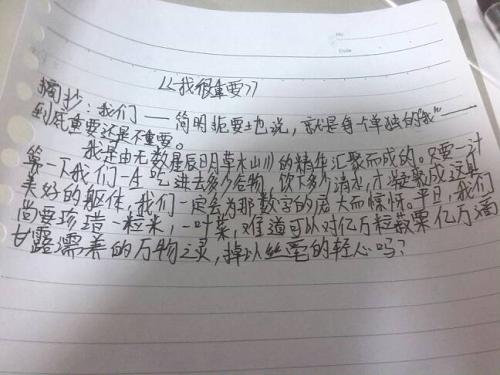 No.
Date
《我很重要》
摘抄:我们——简明扼要地说,就是每个单独的“我”——
到底重要还是不重要。
我是由无数星辰日月草木山川的精华汇聚而成的。只要一计
算一下我们一生吃进去多少谷物,饮下多少清水,才凝聚成这具
美好的躯体,我们一定会为那数字的庞大而惊讶。平日,我们
尚要珍惜一粒米,一叶菜,难道可以对亿万粒菽粟亿万滴
甘露濡养的万物之灵,掉以丝毫的轻心吗?